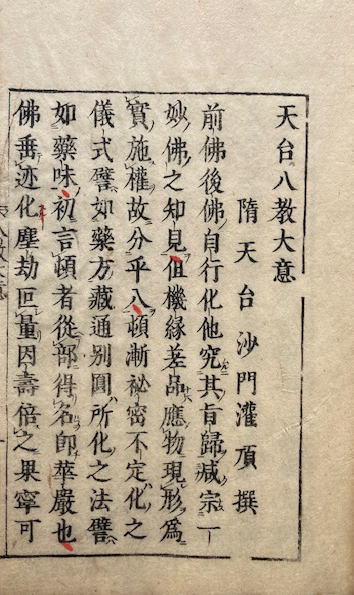 天台八教大意
隋天台沙門灌頂撰
前佛後佛自行化他究其旨歸咸宗一
妙佛之知見但機緣差品應物現形為
實施權故分乎八頓漸祕密不定化之
儀式譬如藥方藏通別圓所化之法譬
如藥味初言頓者從部得名即華嚴也
佛垂迹化塵劫叵量因壽倍之果寧可